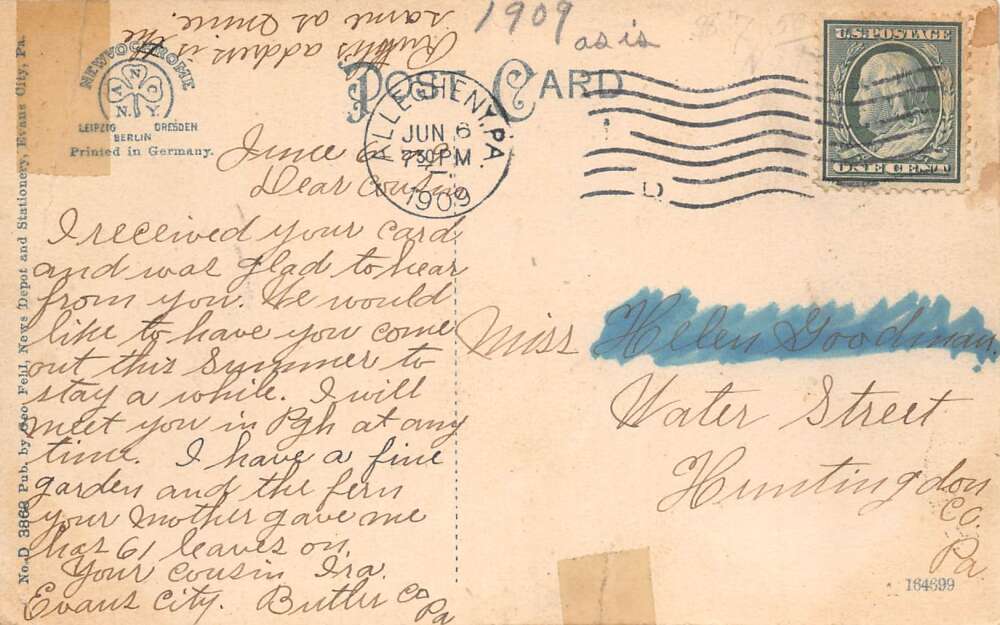 1909
as is
Ruth's address is the
same as mine.
No. D 3869 Pub. by Geo. Feld, News Depot and Stationery, Evans City, Pa.
NEWVOCHROME
LEIPZIG DRESDEN
BERLIN
Printed in Germany.
POST CARD
ALLEGHENY, PA.
JUN 6
730 PM
1909
D
U.S. POSTAGE
ONE CENT
June 6
Dear Cousin
I received your card
and was glad to hear
from you. We would
like to have you come
out this Summer to
stay a while. I will
meet you in Pgh at any
time. I have a fine
garden and the fern
your Mother gave me
has 61 leaves on.
Your Cousin Ira.
Evans City. Butler Co
Pa
Miss Helen Goodman,
Water Street
Huntingdon
Co.
Pa
164699